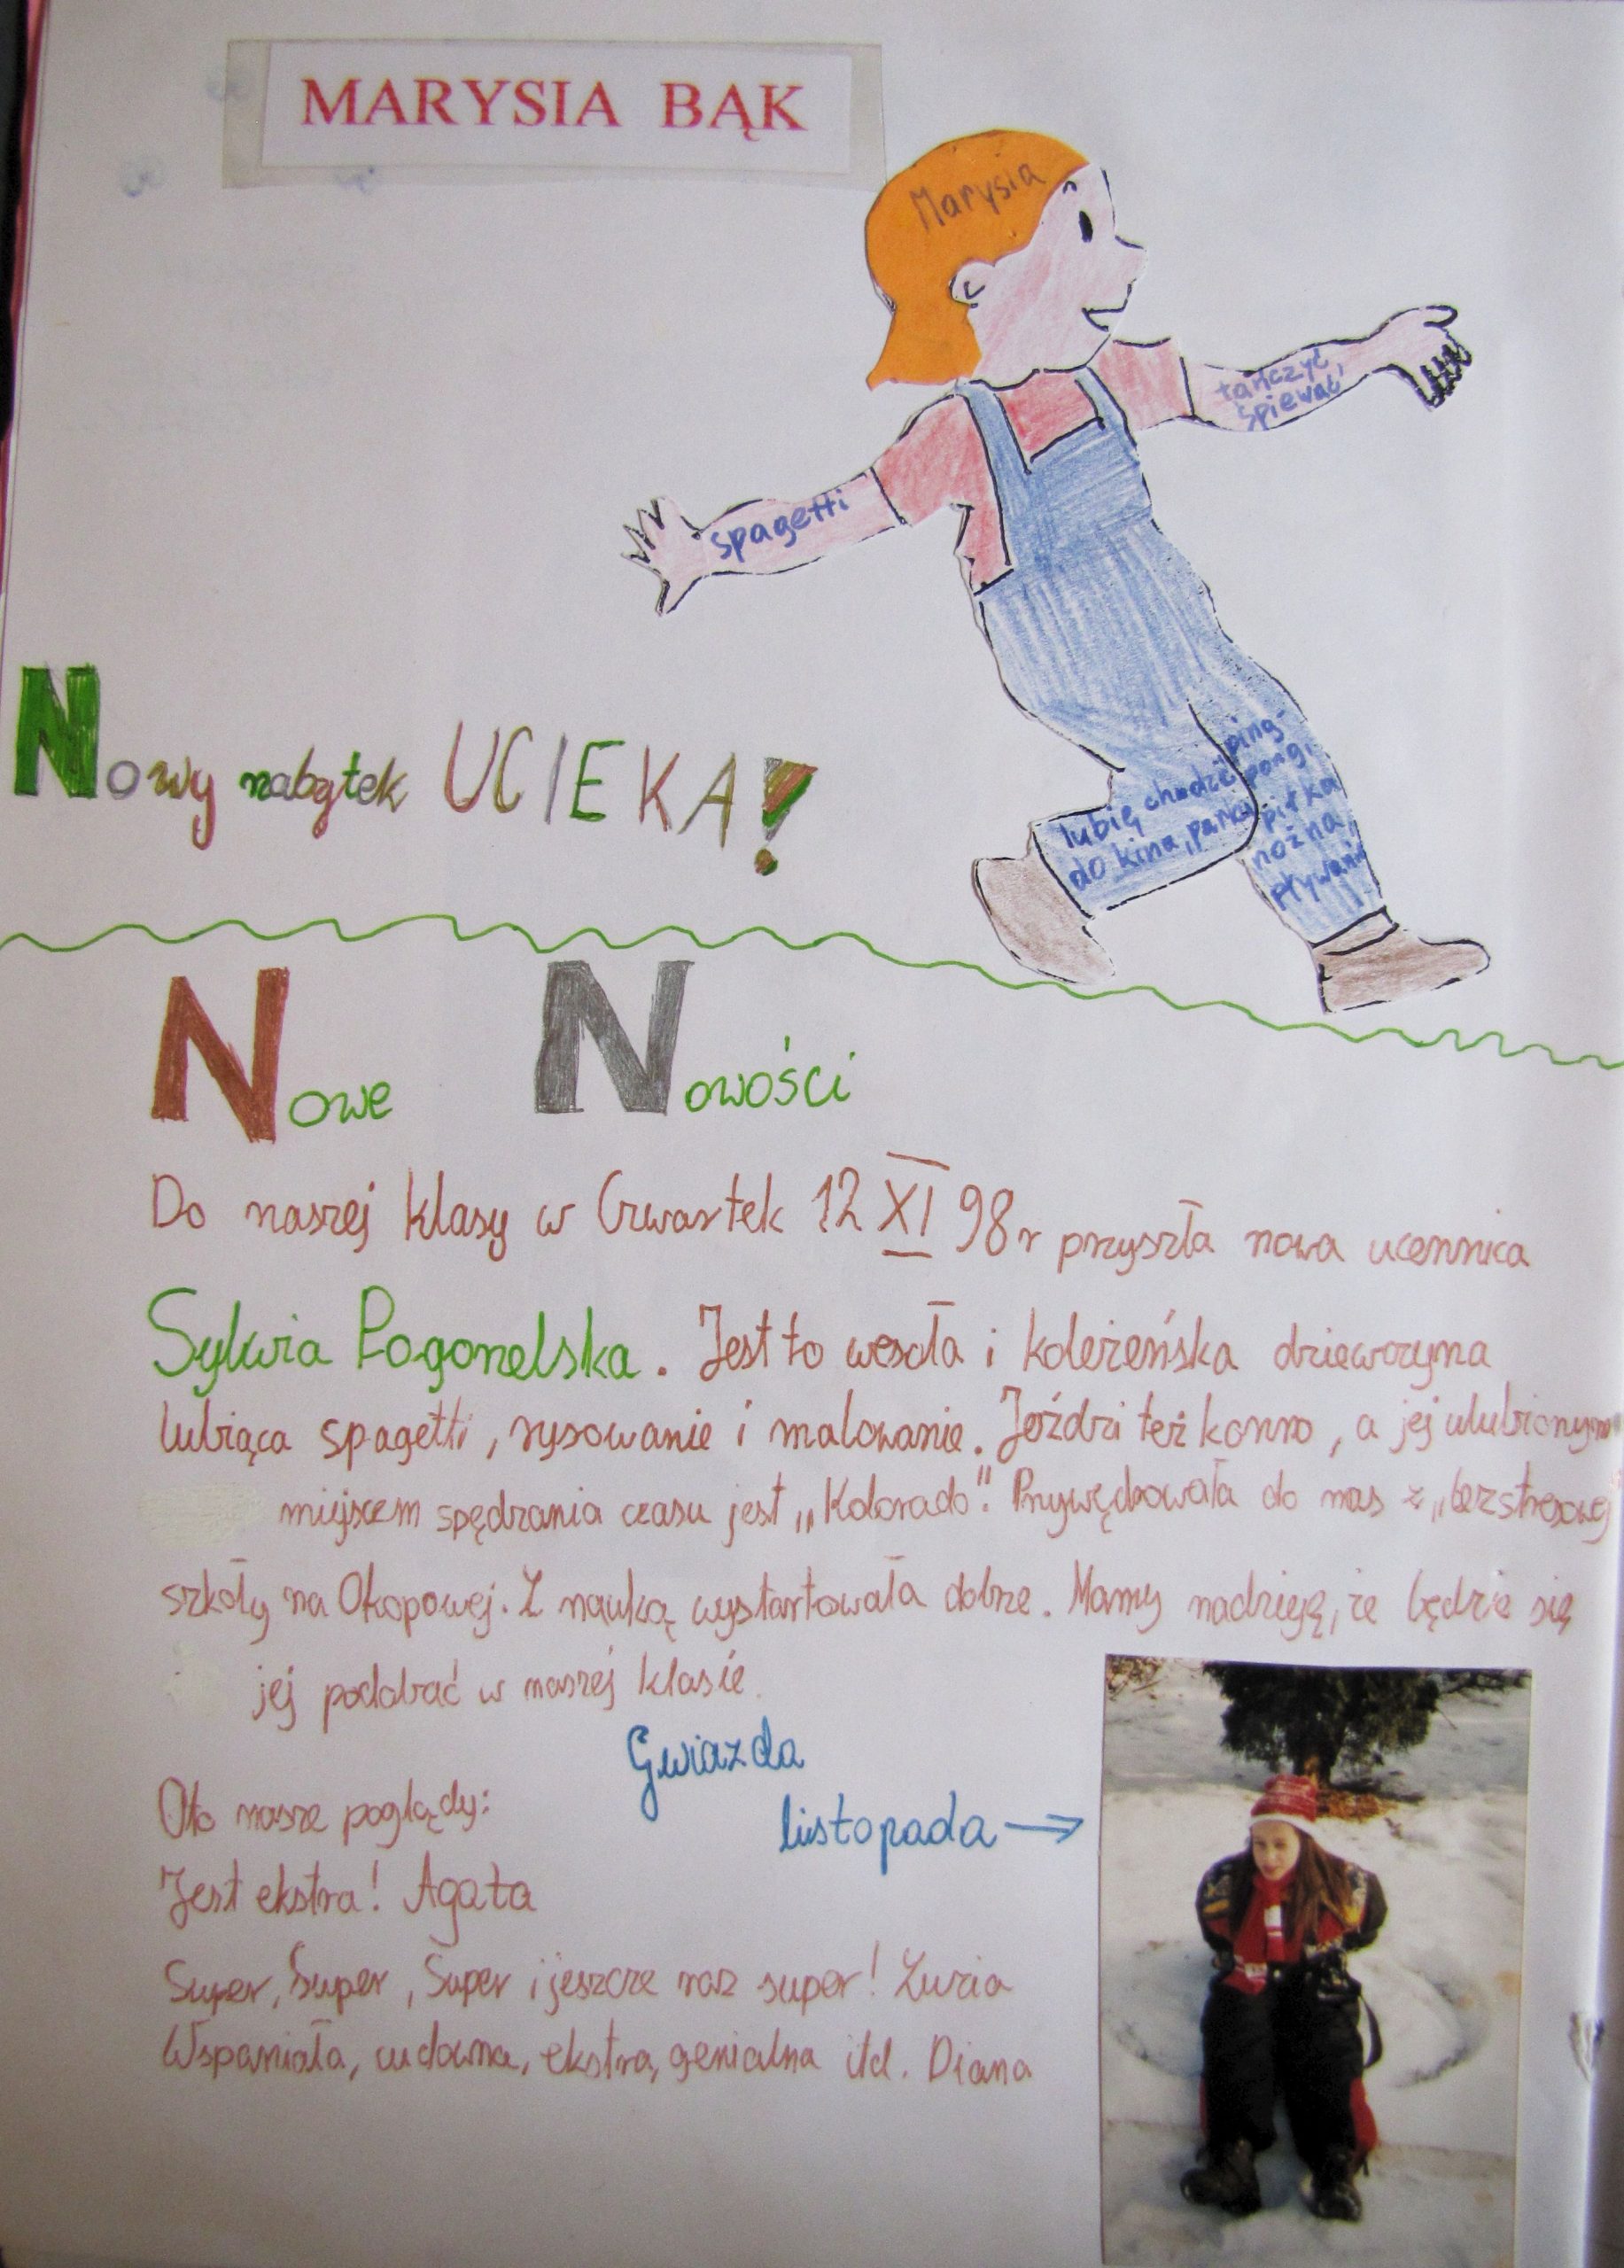 MARYSIA BĄK
Marysia
tańczyć,
śpiewać,
spagetti
Nowy nabytek UCIEKA!
lubię chodzić
do kina, parku
ping-
pong,
piłka
nożna,
pływanie
Nowe Nowości
Do naszej klasy w Czwartek 12 XI 98r przyszła nowa ucennica
Sylwia Pogonelska. Jest to wesoła i koleżeńska dziewczyna
lubiąca spagetti, rysowanie i malowanie. Jeździ też konno, a jej ulubionym
miejscem spędzania czasu jest „Kolorado". Przywędrowała do nas z „bezstresowej
szkoły na Okopowej. Z nauką wystartowała dobrze. Mamy nadzieję, że będzie się
jej podobać w naszej klasie.
Gwiazda
listopada →
Oto nasze poglądy:
Jest ekstra! Agata
Super, Super, Super i jeszcze raz super! Zuzia
Wspaniała, cudowna, ekstra, genialna itd. Diana